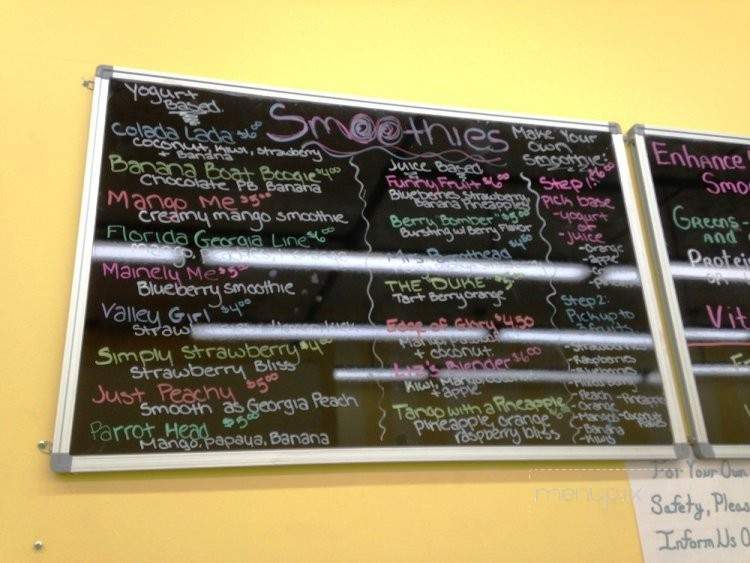 Yogurt
Based
Smoothies
Colada Lada $6.00
coconut, kiwi, strawberry
+ Banana
Banana Boat Boogie $4.00
Chocolate PB Banana
Mango Me $5.00
creamy mango smoothie
Florida Georgia Line $6.00
Mango,
Mainely Me $5.00
Blueberry smoothie
Valley Girl $4.00
Straw
Simply Strawberry $4.00
Strawberry Bliss
Just Peachy $5.00
Smooth as Georgia Peach
Parrot Head $5.00
Mango, Papaya, Banana
Juice Based
Funny Fruit $6.00
Blueberries Strawberry
Banana Pineapple
Berry Bomber $5.00
Bursting w/ Berry Flavor
THE "DUKE" $5.00
Tart Berry orange
Edge of Glory $4.50
Mango,
+ coconut
Liz's Blender $6.00
Kiwi, Mango
+ apple
Tango with a Pineapple
pineapple, orange
raspberry bliss
Make Your
Own
Smoothie:
Step 1: $6.00
pick base
-yogurt
or
-juice
-orange
-apple
Step 2:
Pick up to
3 fruits
-Strawberries
-Raspberries
-Blueberries
-Peach -Pineapple
-Orange
-Mango -Coconut
-Banana
-Kiwi
Enhance
Smo
Greens-
and
Protein
Vit
For Your Own
Safety, Pleas
Inform Us O
menupix